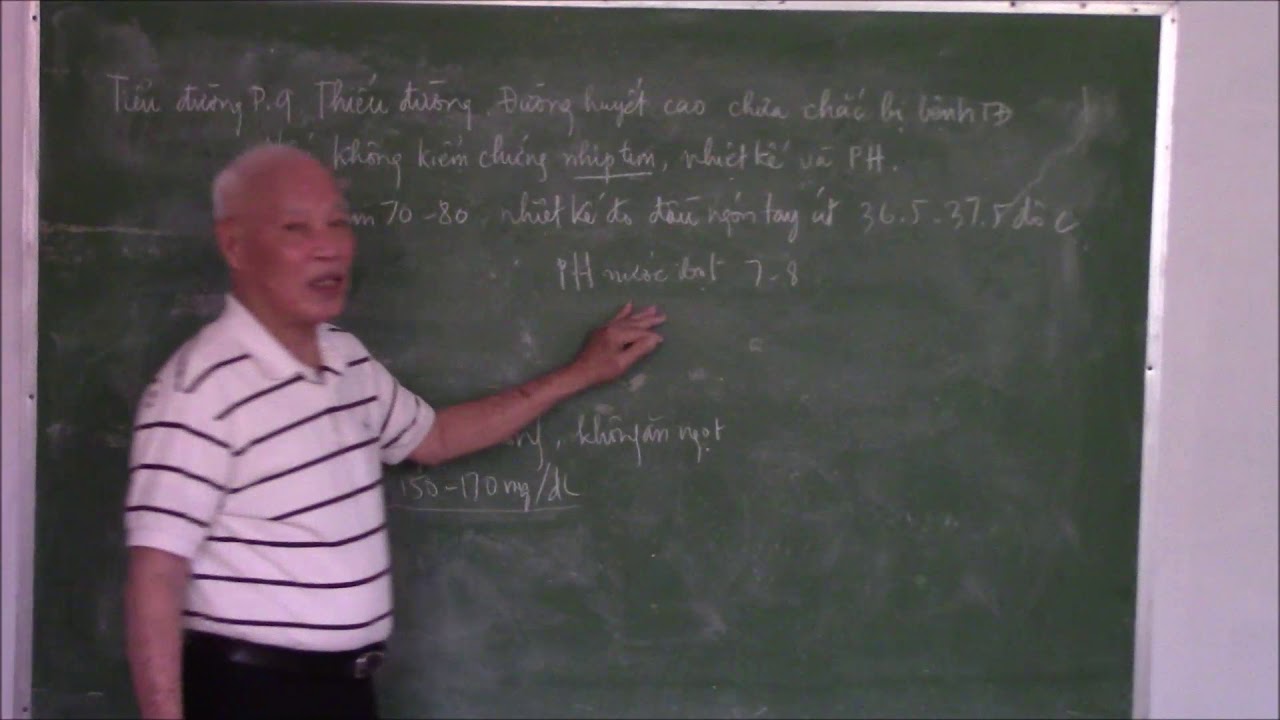 Tiểu đường P.9, Thiếu đường. Đường huyết cao chưa chắc bị bệnh TĐ
không kiểm chứng nhịp tim, nhiệt kế và PH.
70-80, nhiệt kế đo đầu ngón tay út 36.5-37.5 độ C
PH nước bọt 7-8
, không ăn ngọt
150-170mg/dL